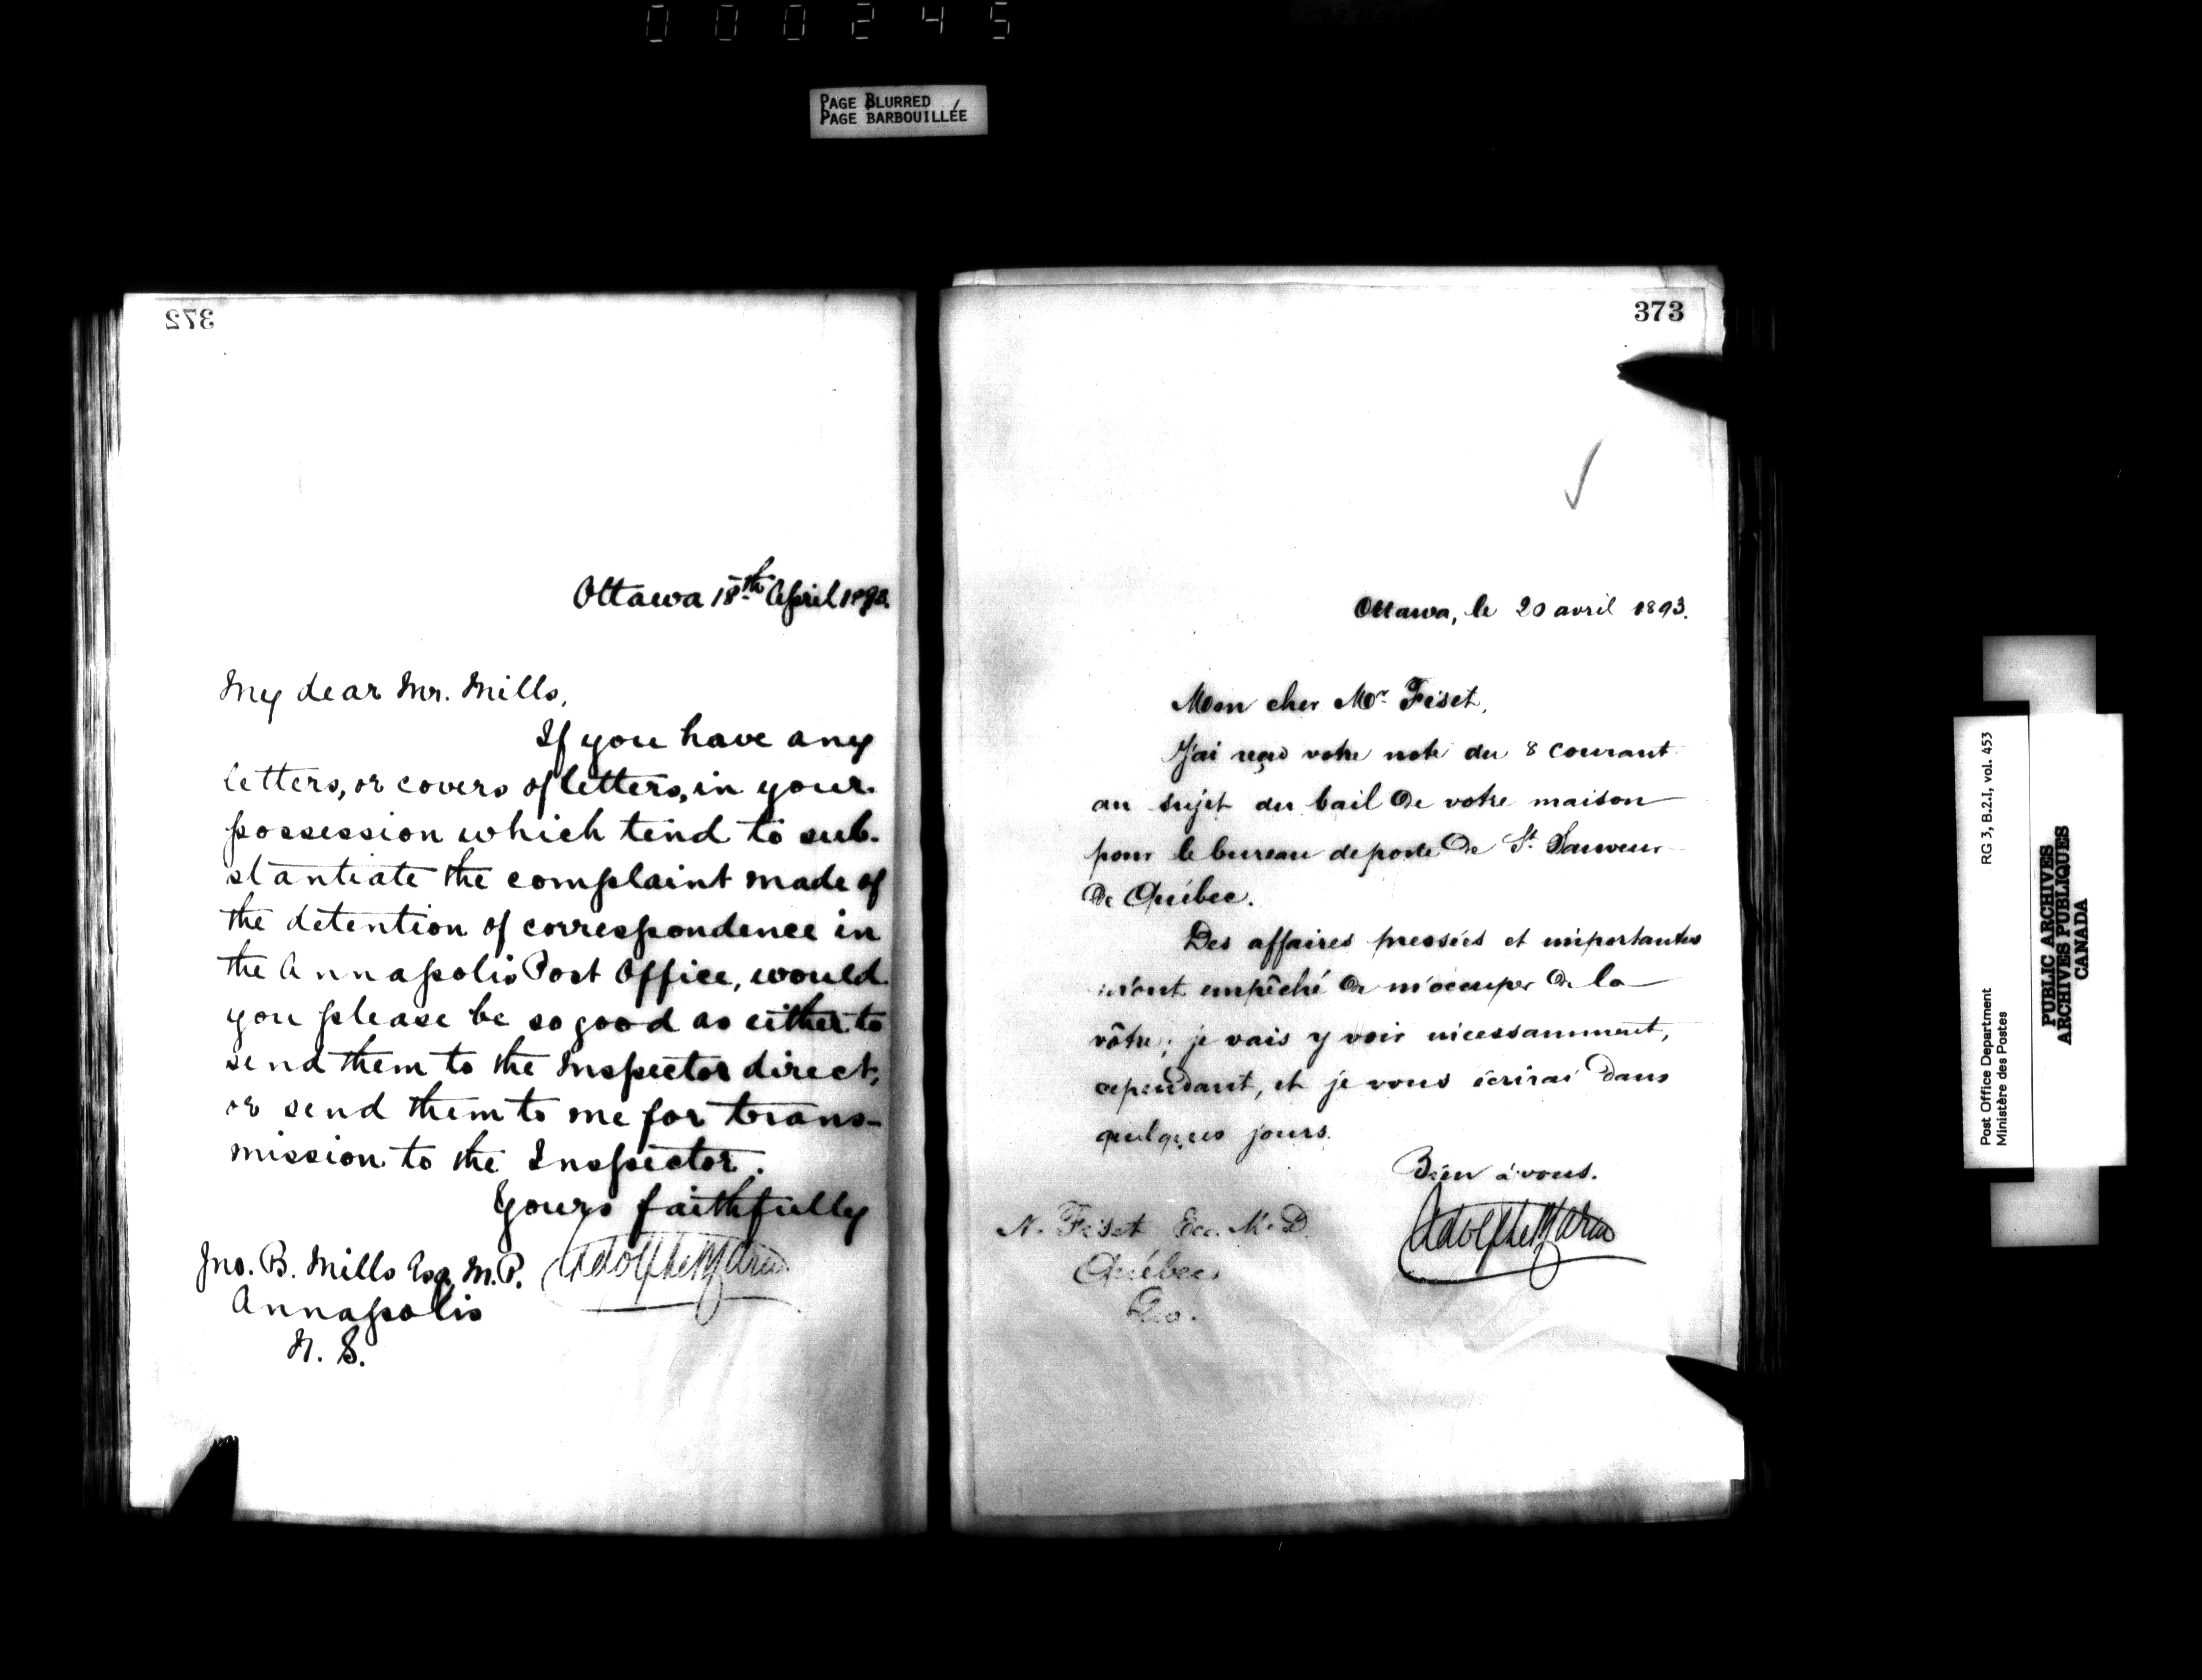 000245
PAGE BLURRED
PAGE BARBOUILLÉE
372
Ottawa 18th April 1893.
My dear Mr. Mills,
If you have any
letters, or covers of letters, in your
possession which tend to sub-
stantiate the complaint made of
the detention of correspondence in
the Annapolis Post Office, would
you please be so good as either to
send them to the Inspector direct,
or send them to me for trans-
mission to the Inspector.
Yours faithfully
Jno. B. Mills Esq. M.P.
Annapolis
N. S.
373
Ottawa, le 20 avril 1893.
Mon cher Mr. Fiset,
J'ai reçu votre note du 8 courant
au sujet du bail de votre maison
pour le bureau de poste de St. Sauveur
de Québec.
Des affaires pressées et importantes
m'ont empêché de m'occuper de la
vôtre; je vais y voir incessamment,
cependant, et je vous écrirai dans
quelques jours.
Bien à vous.
N. Fiset Ecr. M.D.
Québec
Qc.
Post Office Department
Ministère des Postes
RG 3, B.2.I, vol. 453
PUBLIC ARCHIVES
ARCHIVES PUBLIQUES
CANADA